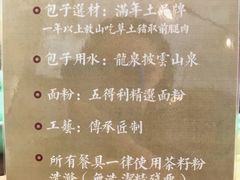 包子選材：滿年土品牌
一年以上放山吃草土豬取前腿肉
包子用水：龍泉披雲山泉
面粉：五得利精選面粉
工藝：傳承匠制
所有餐具一律使用茶籽粉
清滌（無洗潔精殘留）